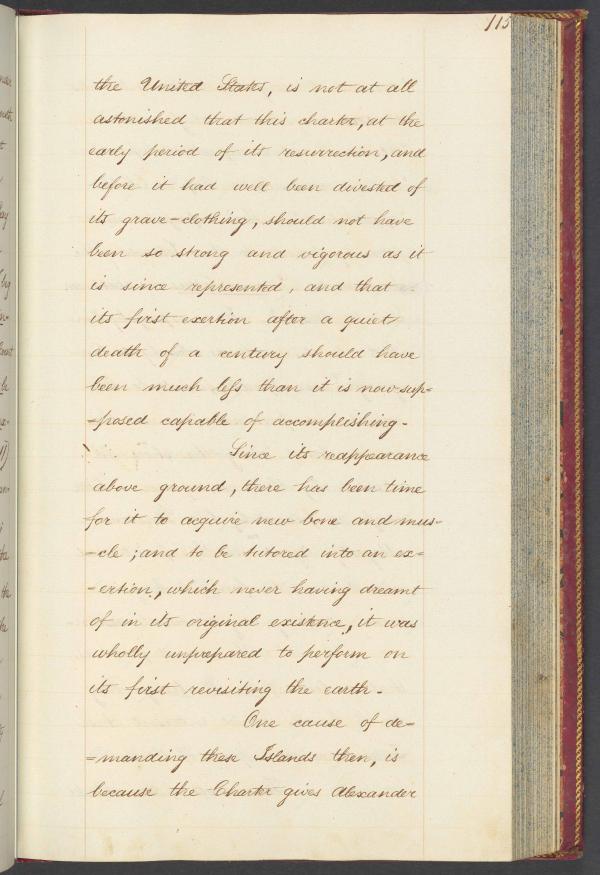 115
the United States, is not at all
astonished that this charter, at the
early period of its resurrection, and
before it had well been divested of
its grave-clothing, should not have
been so strong and vigorous as it
is since represented, and that
its first exertion after a quiet
death of a century should have
been much less than it is now sup=
=posed capable of accomplishing.
Since its reappearance
above ground, there has been time
for it to acquire new bone and mus-
-cle; and to be tutored into an ex=
=ertion, which never having dreamt
of in its original existence, it was
wholly unprepared to perform on
its first revisiting the earth.
One cause of de=
=manding these Islands then, is
because the Charter gives Alexander